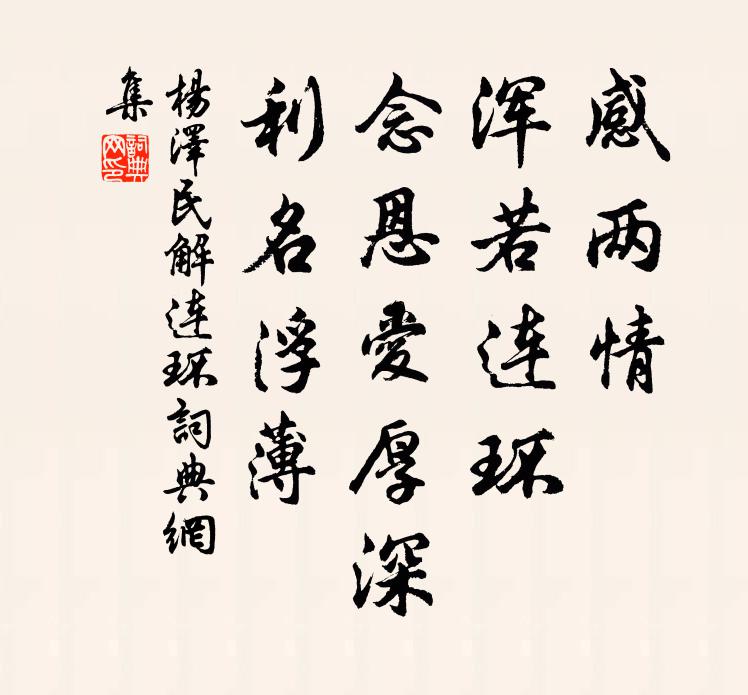 感两情
浑若连环
念恩愛厚深
利名浮薄
楊澤民解连环詞典網
集
詞典
网印